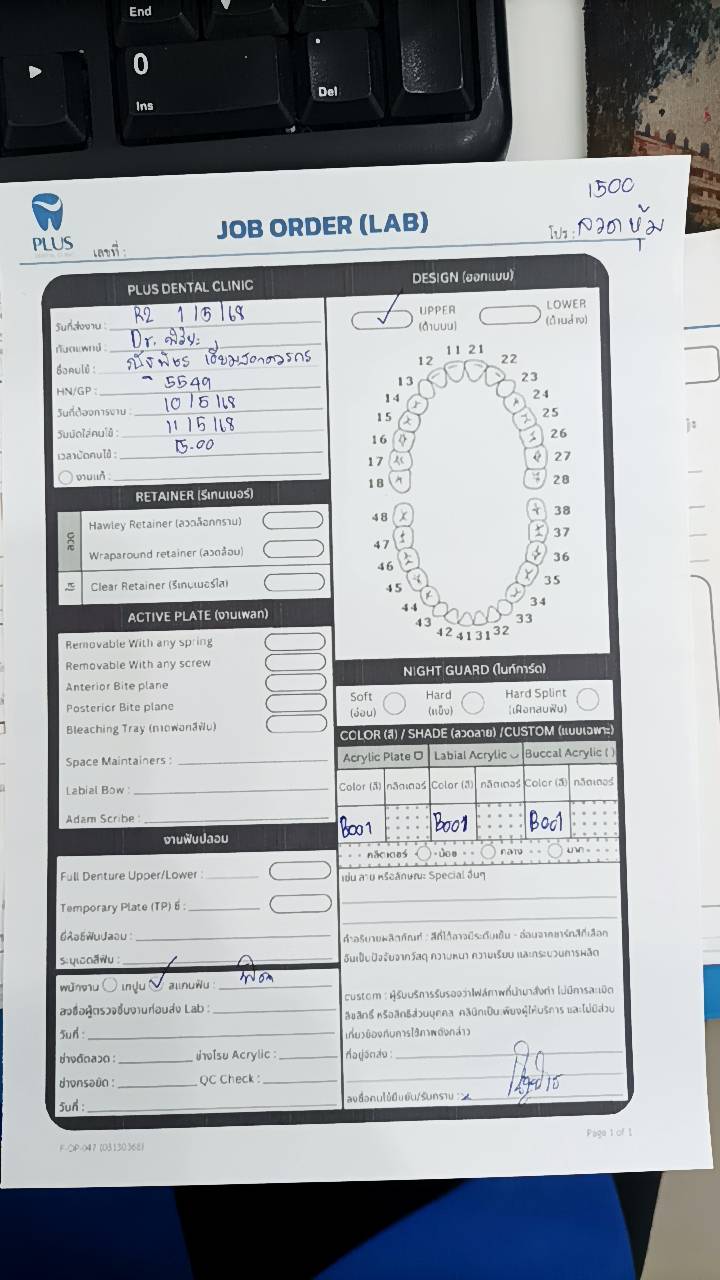 End
0
Ins
Del
1500
PLUS
JOB ORDER (LAB)
เลขที่ :
โปร : ลวดหุ้ม
PLUS DENTAL CLINIC
R2 1/5/68
วันที่ส่งงาน :
ทันตแพทย์ : Dr.
ชื่อคนไข้ :
HN/GP : 5549
วันที่ต้องการงาน : 10/5/68
วันนัดใส่คนไข้ : 11/5/68
เวลานัดคนไข้ : 15.00
งานแก้ :
RETAINER (รีเทนเนอร์)
ลวด
Hawley Retainer (ลวดล็อกกราม)
Wraparound retainer (ลวดล้อม)
ใส
Clear Retainer (รีเทนเนอร์ใส)
ACTIVE PLATE (งานเพลท)
Removable With any spring
Removable With any screw
Anterior Bite plane
Posterior Bite plane
Bleaching Tray (ถาดฟอกสีฟัน)
Space Maintainers :
Labial Bow :
Adam Scribe :
งานฟันปลอม
Full Denture Upper/Lower :
Temporary Plate (TP) ซี่ :
ยี่ห้อซี่ฟันปลอม :
ระบุเฉดสีฟัน :
พนักงาน เทปูน สแกนฟัน :
ลงชื่อผู้ตรวจชิ้นงานก่อนส่ง Lab :
วันที่ :
ช่างดัดลวด : ช่างโรย Acrylic :
ช่างกรอขัด : QC Check :
วันที่ :
DESIGN (ออกแบบ)
UPPER
(ด้านบน)
LOWER
(ด้านล่าง)
11 21
12 22
13 23
14 24
15 25
16 26
17 27
18 28
48 38
47 37
46 36
45 35
44 34
43 33
42 41 31 32
NIGHT GUARD (ไนท์การ์ด)
Soft
(อ่อน)
Hard
(แข็ง)
Hard Splint
(เฝือกสบฟัน)
COLOR (สี) / SHADE (ลวดลาย) /CUSTOM (แบบเฉพาะ)
Acrylic Plate Labial Acrylic Buccal Acrylic ( )
Color (สี) กลิตเตอร์ Color (สี) กลิตเตอร์ Color (สี) กลิตเตอร์
B001 B001 B001
กลิตเตอร์ น้อย กลาง มาก
เช่น ลาย หรือลักษณะ Special อื่นๆ
คำอธิบายผลิตภัณฑ์ : สีที่ได้อาจมีระดับเข้ม - อ่อนจากชาร์ตสีที่เลือก
อันเป็นปัจจัยจากวัสดุ ความหนา ความเรียบ และกระบวนการผลิต
custom : ผู้รับบริการรับรองว่าไฟล์ภาพที่นำมาสั่งทำ ไม่มีการละเมิด
ลิขสิทธิ์ หรือสิทธิส่วนบุคคล คลินิกเป็นเพียงผู้ให้บริการ และไม่มีส่วน
เกี่ยวข้องกับการใช้ภาพดังกล่าว
ที่อยู่จัดส่ง :
ลงชื่อคนไข้ยืนยัน/รับทราบ : x
F-OP-047 (03130368)
Page 1 of 1